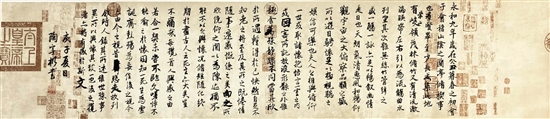 永和九年歲在癸丑暮春之初會
于會稽山陰之蘭亭脩稧事
也群賢畢至少長咸集此地
有崇山峻領茂林脩竹又有清流激
湍映帶左右引以為流觴曲水
列坐其次雖無絲竹管弦之
盛一觴一詠亦足以暢敘幽情
是日也天朗氣清惠風和暢仰
觀宇宙之大俯察品類之盛
所以遊目騁懷足以極視聽之
娛信可樂也夫人之相與俯仰
一世或取諸懷抱悟言一室之內
或因寄所託放浪形骸之外雖
趣舍萬殊靜躁不同當其欣
於所遇蹔得於己怏然自足不
知老之將至及其所之既惓情
隨事遷感慨係之矣向之所
欣俛仰之間以為陳迹猶不
能不以之興懷況脩短隨化終
期於盡古人云死生亦大矣豈
不痛哉每攬昔人興感之由
若合一契未嘗不臨文嗟悼不
能喻之於懷固知一死生為虛
誕齊彭殤為妄作後之視今
亦由今之視昔悲夫故列
敘時人錄其所述雖世殊事
異所以興懷其致一也後之攬
者亦將有感於斯文
子夏日